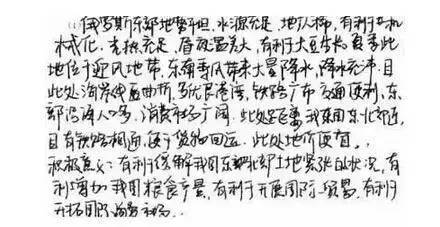 俄罗斯东部地势平坦,水源充足,地广人稀,有利于机
械化。光热充足,昼夜温差大,有利于大豆生长。夏季此
地位于迎风地带,东南季风带来大量降水,降水充沛。且
此处海岸线曲折,多优良港湾,铁路广布,交通便利,东
部沿海人口多,消费市场广阔。此处距离我国东北部近,
且有铁路相通,便于货物回运。此处地价便宜。
积极意义:有利于缓解我国东北部土地紧张的状况,有
利增加我国粮食产量,有利于开展国际贸易,有利于
开拓国际市场。